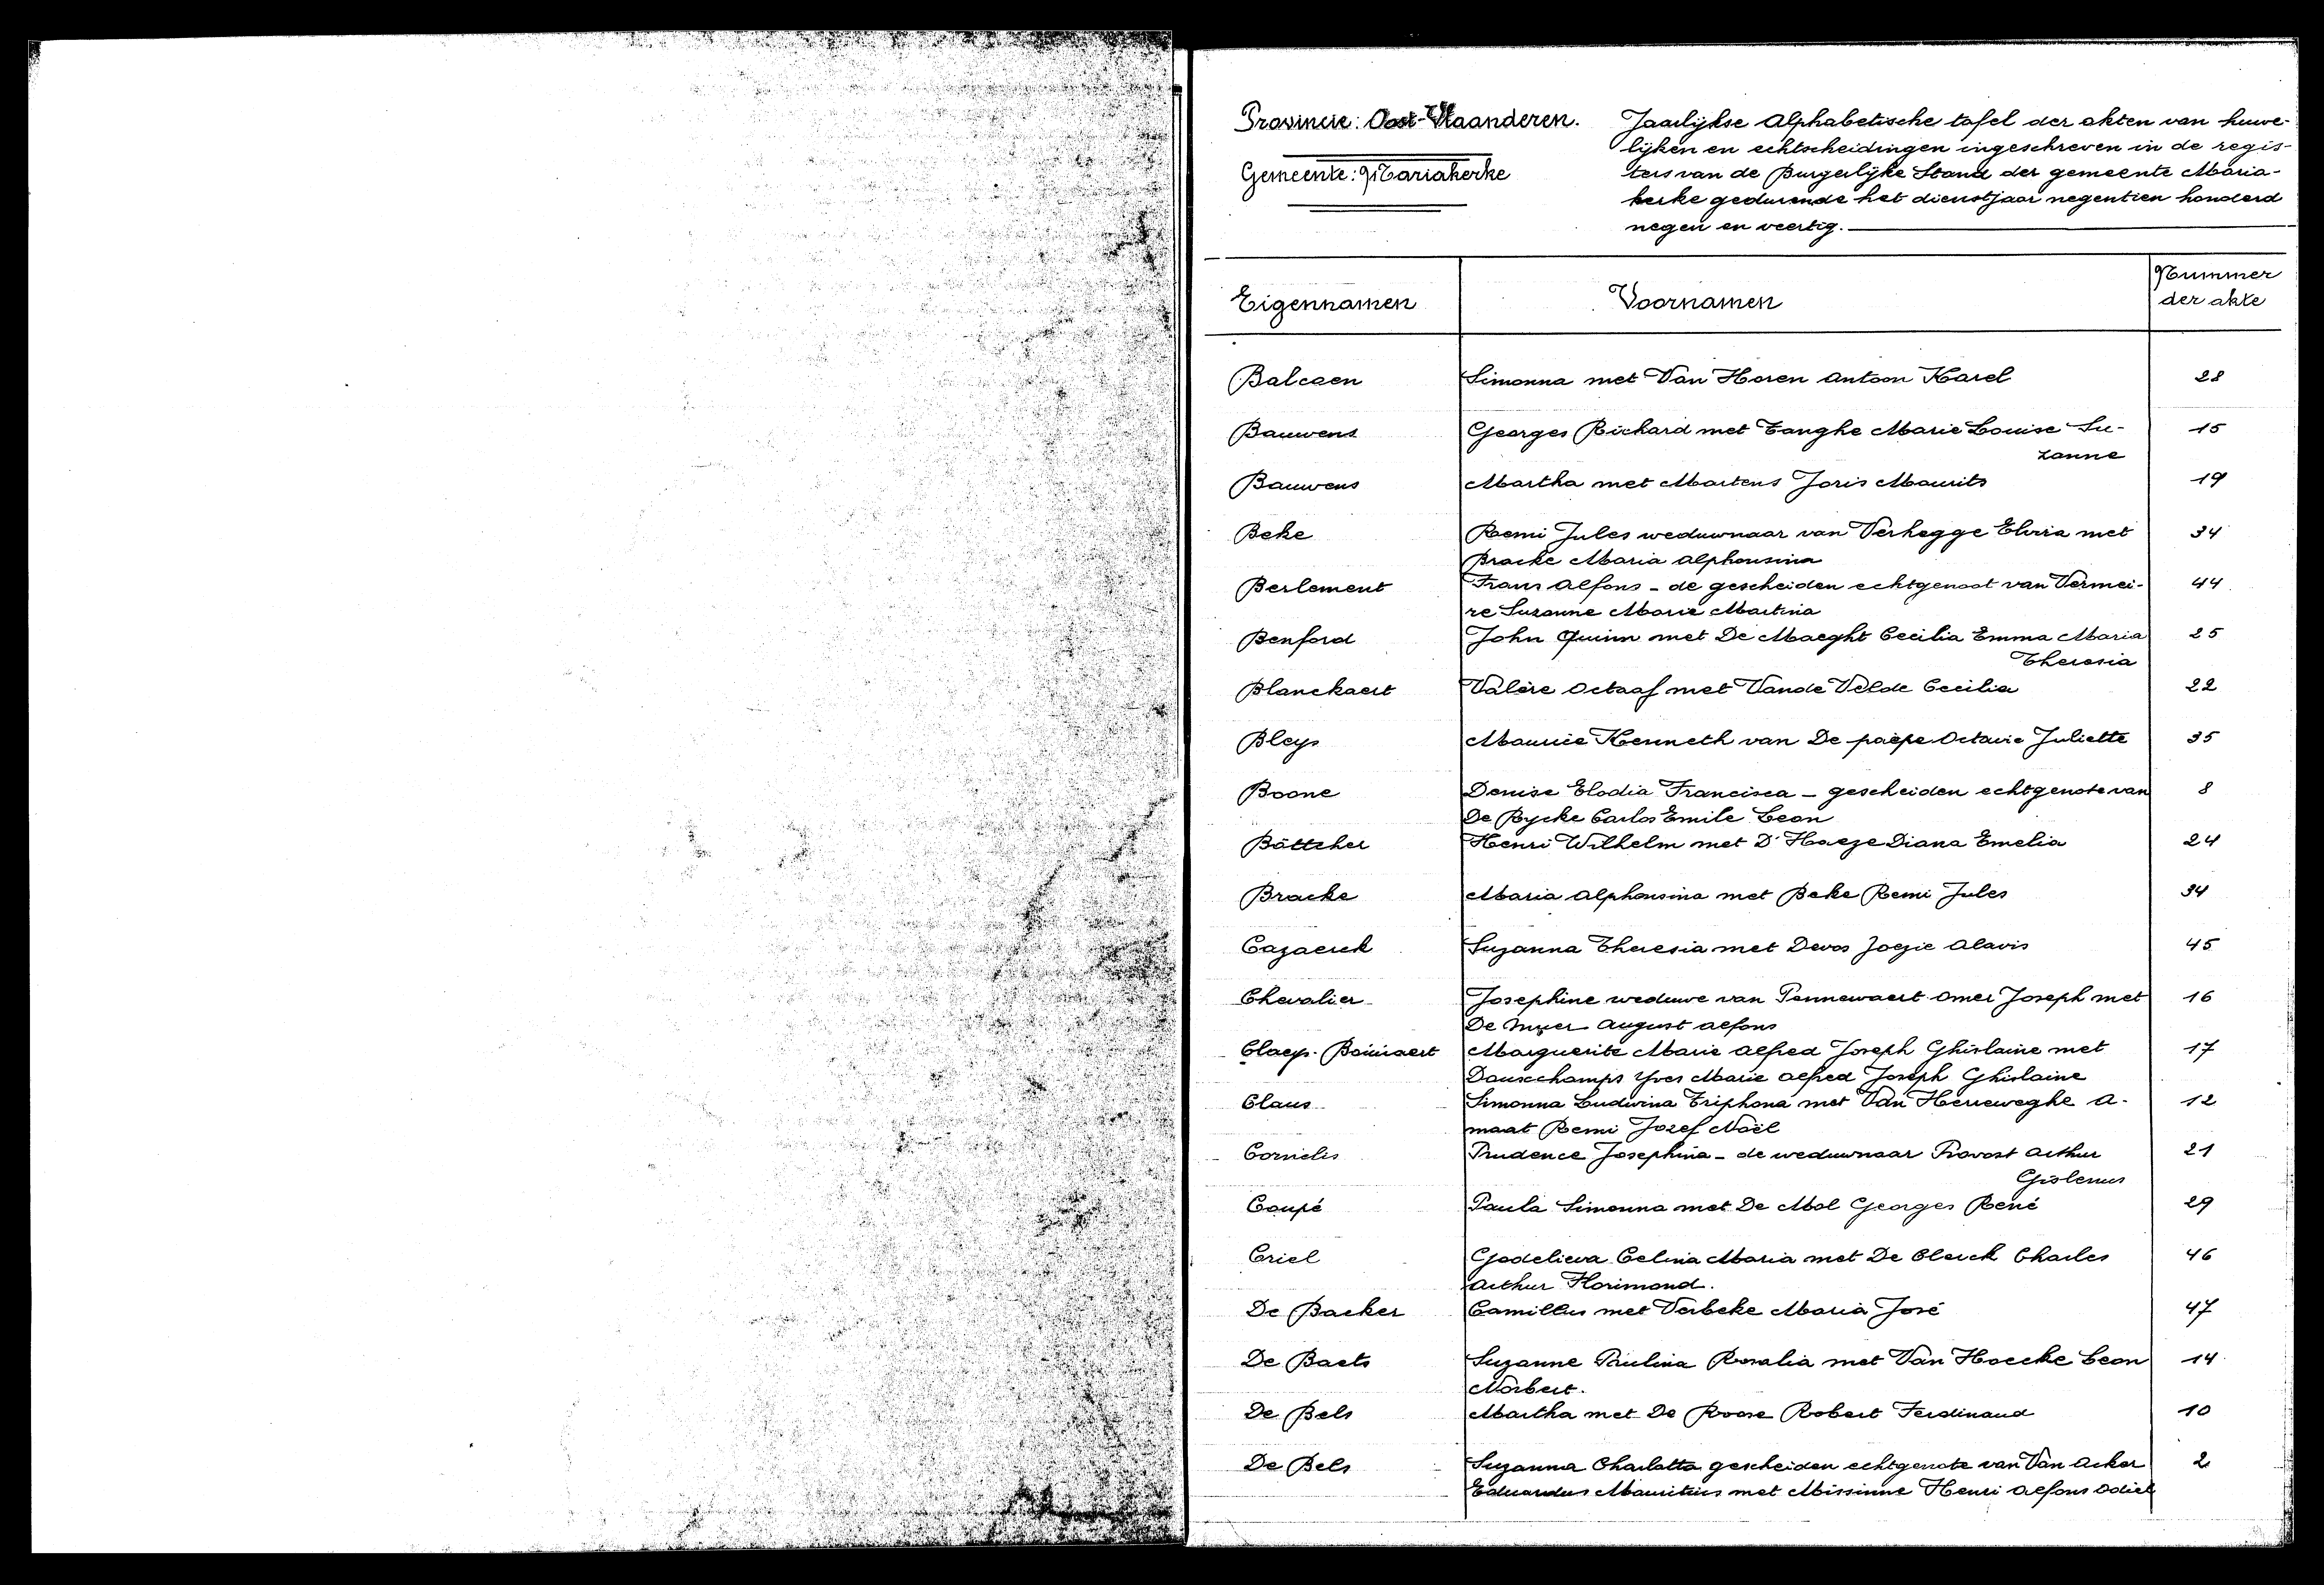 Provincie: Oost-Vlaanderen.
Gemeente: Mariakerke
Jaarlijkse Alphabetische tafel der akten van huwe-
lijken en echtscheidingen ingeschreven in de regis-
ters van de Burgerlijke Stand der gemeente Maria-
kerke gedurende het dienstjaar negentien honderd
negen en veertig.
Eigennamen Voornamen Nummer
der akte
Balcaen Simonna met Van Horen Antoon Karel 28
Bauwens Georges Richard met Tanghe Marie Louise Su- 15
zanne
Bauwens Martha met Martens Joris Maurits 19
Beke Remi Jules weduwnaar van Verhegge Elvira met 34
Bracke Maria Alphonsina
Berlement Frans Alfons - de gescheiden echtgenoot van Vermei- 44
re Suzanne Marie Martina
Benford John Quinn met De Maeght Cecilia Emma Maria 25
Theresia
Blanckaert Valère Octaaf met Vande Velde Cecilia 22
Bleys Maurice Kenneth van De paepe Octavie Juliette 35
Boone Denise Elodia Francisca - gescheiden echtgenote van 8
De Rycke Carlos Emile Leon
Böttcher Henri Wilhelm met D'Haeze Diana Emelia 24
Bracke Maria Alphonsina met Beke Remi Jules 34
Cazaerck Suzanna Theresia met Devos Jozie Alavis 45
Chevalier Josephine weduwe van Pennewaert Omer Joseph met 16
De August Alfons
Claeys-Boùùaert Marguerite Marie Alfred Joseph Ghislaine met 17
Dauschamps Yves Marie Alfred Joseph Ghislaine
Claus Simonna Ludwina Triphona met Van Herreweghe A- 12
maat Remi Jozef Noël
Cornelis Prudence Josephina - de weduwnaar Provost Arthur 21
Gislenus
Coupé Paula Simonna met De Mol Georges René 29
Criel Godelieva Celina Maria met De Clerck Charles 46
Arthur Florimond.
De Backer Camillus met Verbeke Maria José 47
De Baets Suzanne Paulina Rosalia met Van Hoecke Leon 14
Norbert.
De Bels Martha met De Roose Robert Ferdinand 10
De Bels Suzanna Charlotta gescheiden echtgenote van Van Acker 2
Eduardus Mauritius met Missinne Henri Alfons Odiel